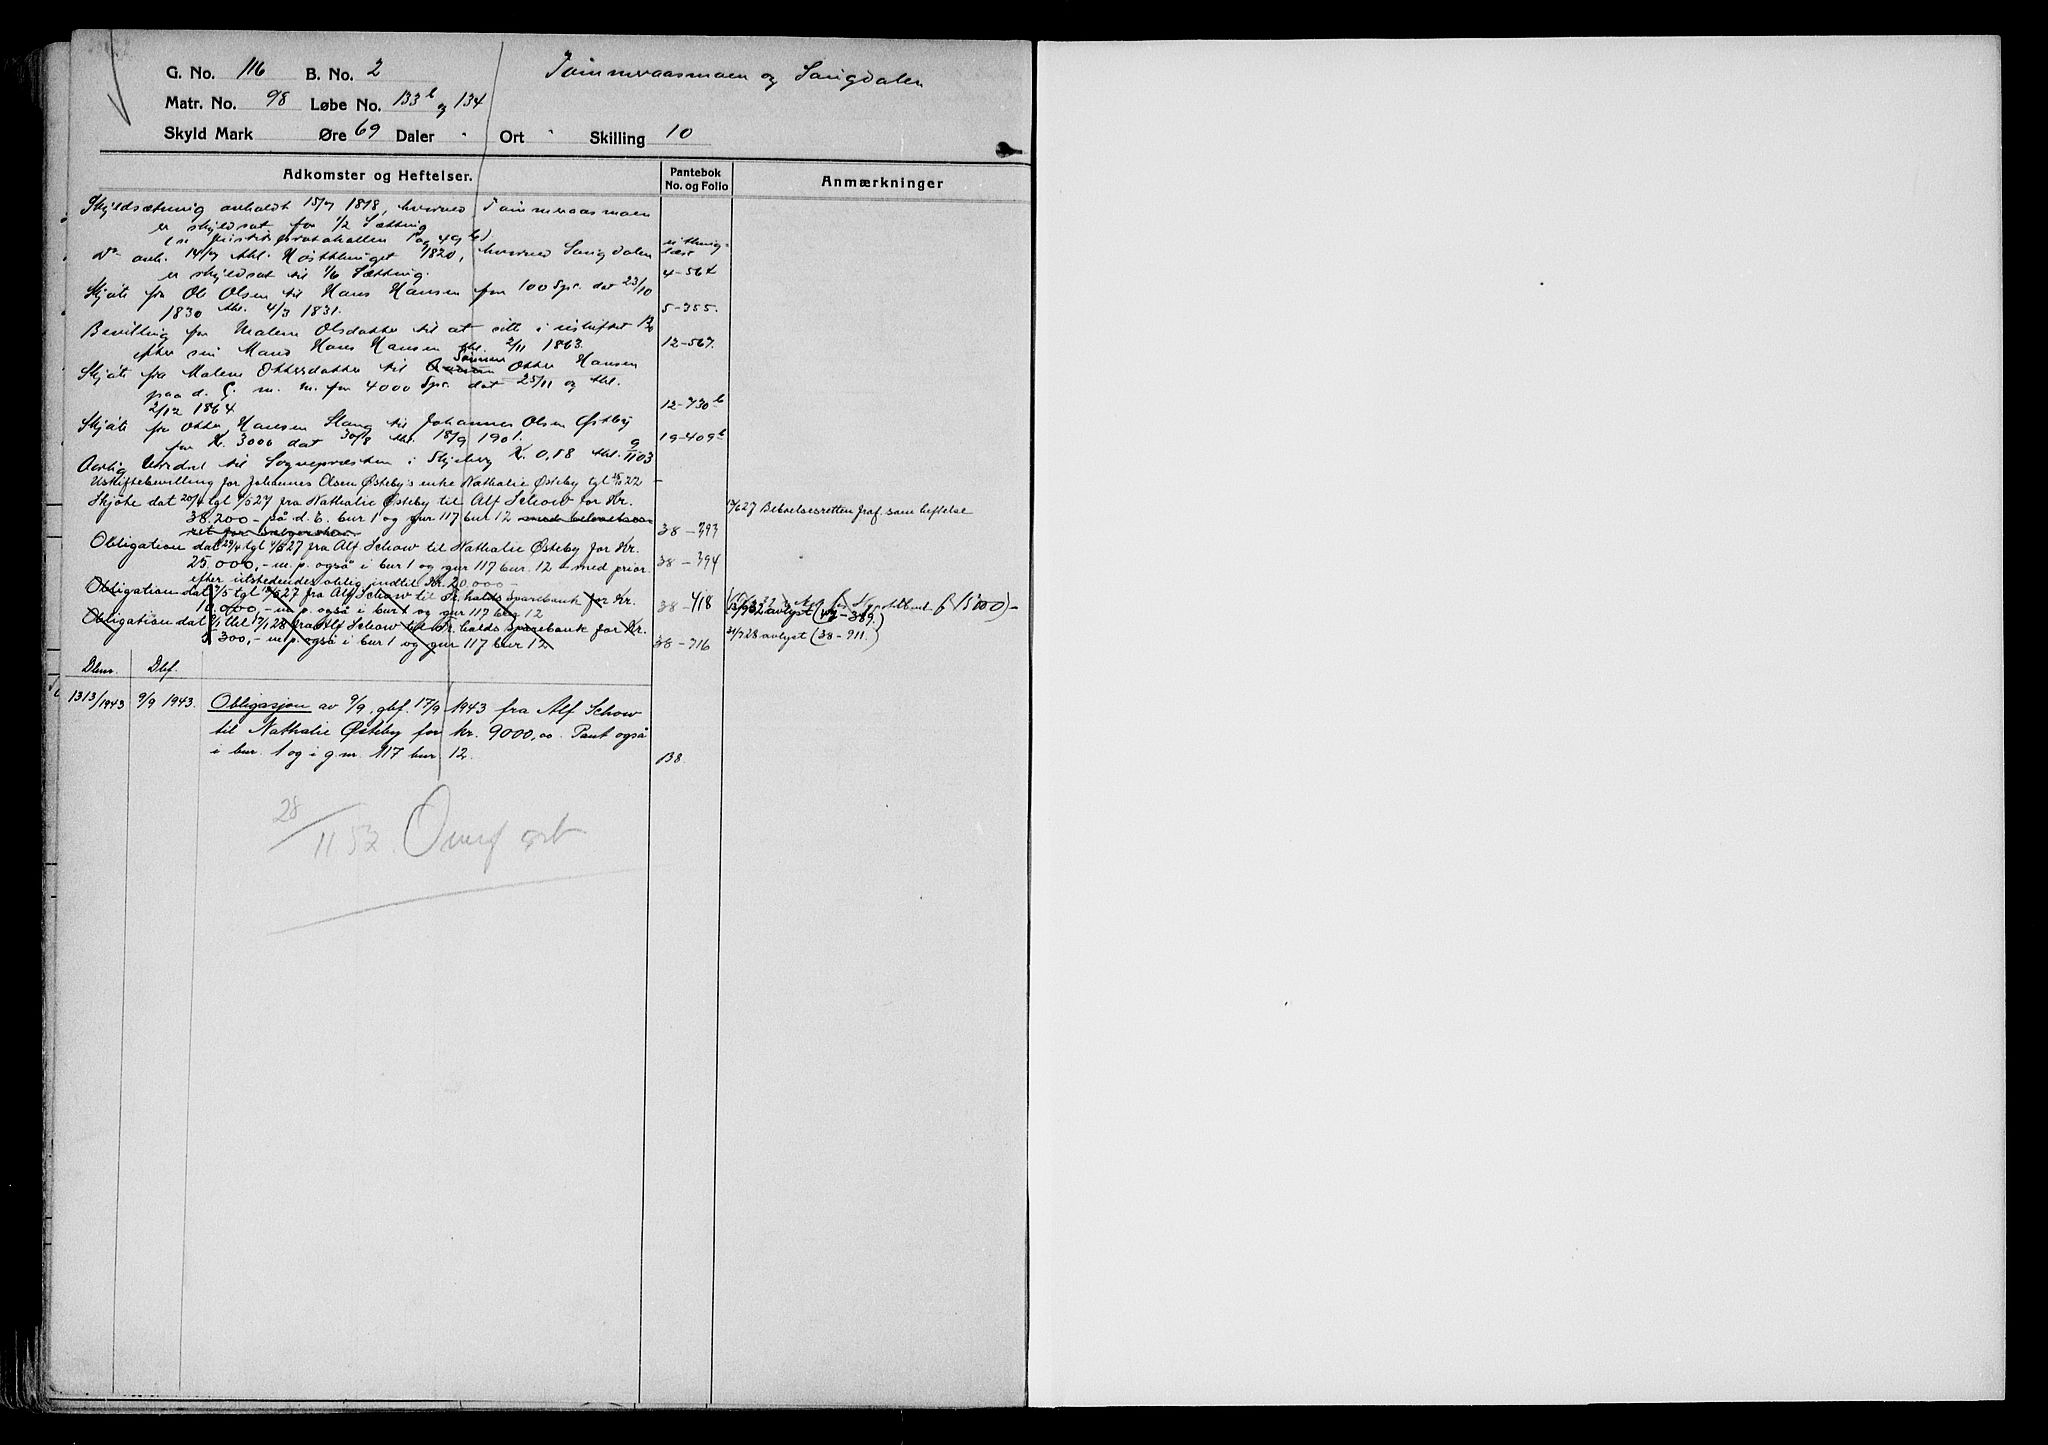 G. No. 116 B. No. 2 Tømmeraasmoen og Laugdalen
Matr. No. 98 Løbe No. 133b og 134
Skyld Mark Øre 69 Daler " Ort " Skilling 10
Adkomster og Heftelser. Pantebok No. og Folio Anmærkninger
Skyldsætning avholdt 15/7 1818, hvorved Tømmeraasmoen
er skyldsat for 1/2 Sætting
(se justitsprotokollen pag 49 b)
Do avh. 14/7 thl. Høstthinget 1820, hvorved Laugdalen
er skyldsat til 1/6 Sætting. 4-56b
Skjøte fra Ole Olsen til Hans Hansen for 100 Spr. dat 23/10
1830 thl. 4/3 1831. 5-355.
Bevilling for Malene Olsdatter til at sitte i uskiftet Bo
efter sin Mand Hans Hansen thl. 2/11 1863. 12-567.
Skjøte fra Malene Ottersdatter til Sønnen Otter Hansen
paa d. E. m. m. for 4000 Spr. dat 25/11 og thl.
2/12 1864 12-730b
Skjøte fra Otter Hansen Slang til Johannes Olsen Østby
for Kr. 3000 dat 30/8 thl. 18/9 1901. 19-409b
Aarlig Utredsel til Sognepræsten i Skjeberg Kr. 0,58 thl. 9/11 03
Uskiftebevilling for Johannes Olsen Østeby's enke Nathalie Østeby tgl 22 -
Skjøte dat 20/4 tgl 4/5 27 fra Nathalie Østeby til Alf Schow for Kr.
38.200 - på d. E. bur 1 og gur 117 bur 12 med beboelses-
ret for sælgerskan. 38-393 27 Beboelsesretten fraf. som heftelse
Obligation dat 29/4 tgl 4/5 27 fra Alf Schow til Nathalie Østeby for Kr.
25.000,- m. p. også i bur 1 og gur 117 bur. 12 - med prior. 38-394
efter utstedendes oblig. indtil Kr. 20.000-
Obligation dat 7/5 tgl 27 fra Alf Schow til Fr.halds Sparebank for Kr.
10.000,- m. p. også i bur 1 og gur 117 bur 12 38-418 32 avlyst (42-389.)
Obligation dat thl 17/1 28 fra Alf Schow til Fr.halds Sparebank for Kr.
300,- m. p. også i bur 1 og gur 117 bur 12 38-716 31/7 28 avlyst (38-911.)
Dbnr. Dbf.
1313/1943 9/9 1943. Obligasjon av 9/9, gbf. 17/9 1943 fra Alf Schow
til Nathalie Østeby for kr. 9000,00. Pant også
i bur. 1 og i g.nr. 117 bur. 12. B8.
28/11 52. Overført